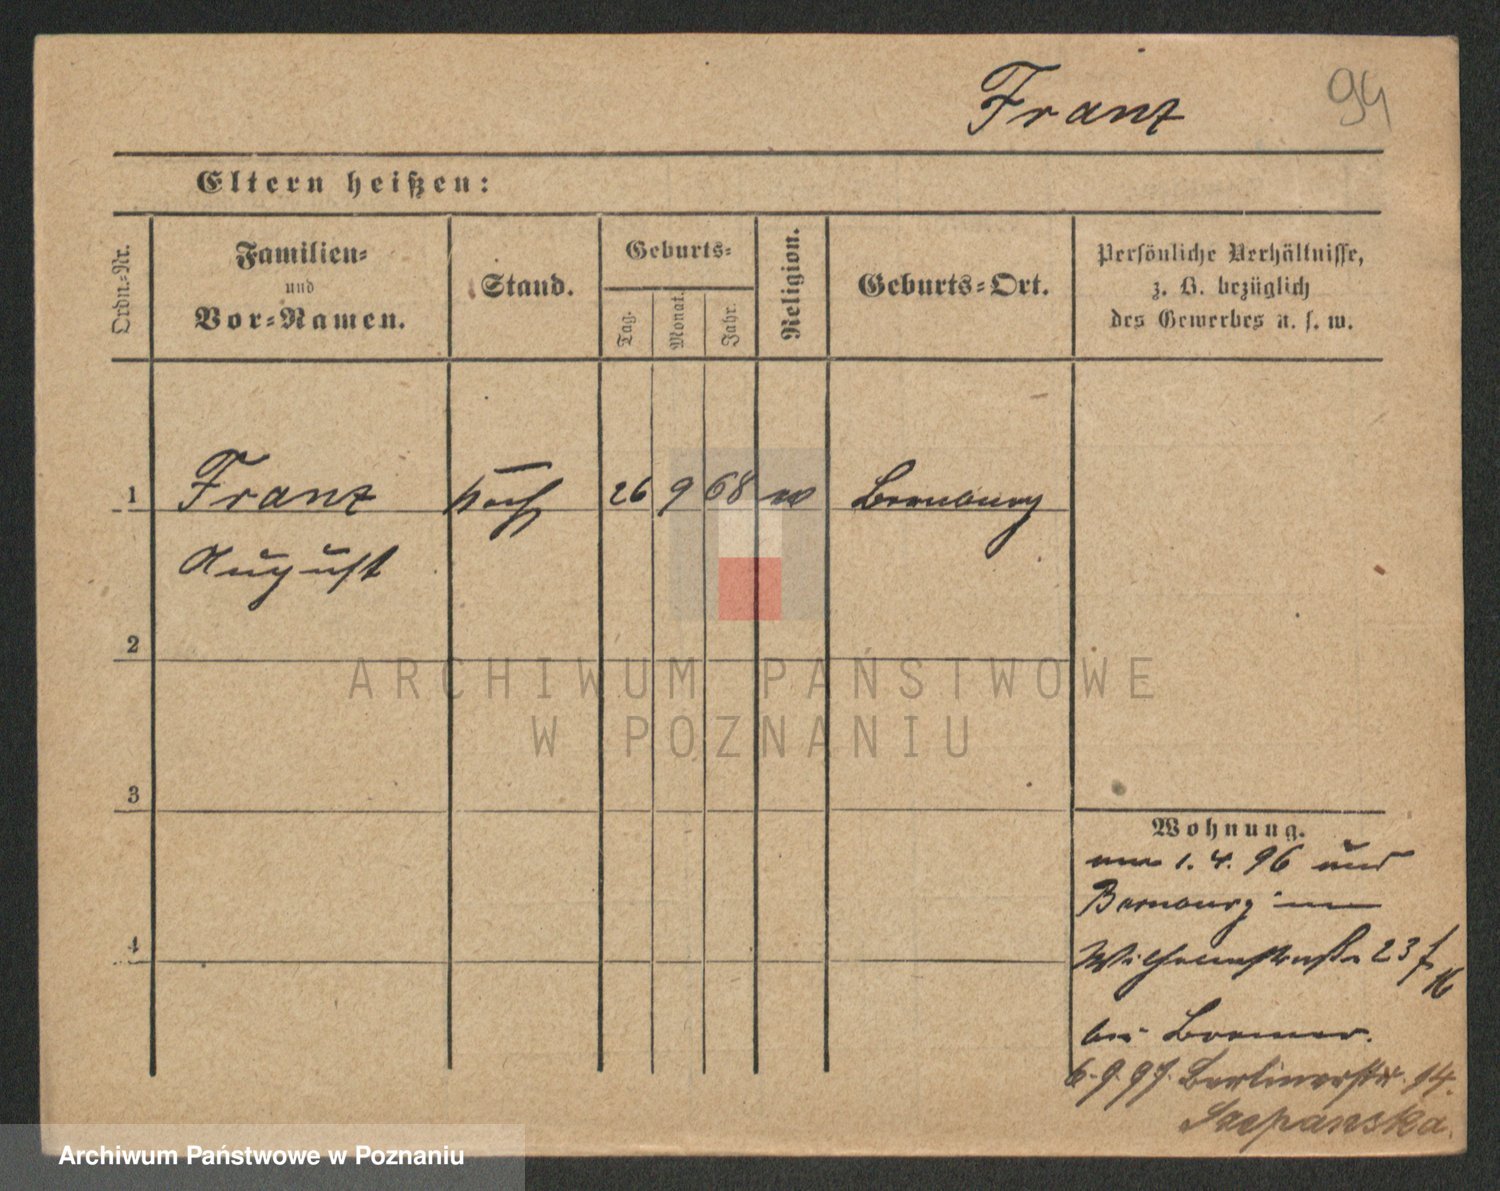 Franz
94
Eltern heißen:
Ordn.-Nr.
Familien-
und
Vor-Namen.
Stand.
Geburts-
Tag.
Monat.
Jahr.
Religion.
Geburts-Ort.
Persönliche Verhältnisse,
z. B. bezüglich
des Gewerbes u. s. w.
1 Franz Koch 26 9 68 Bernburg
August
2
ARCHIWUM PAŃSTWOWE
W POZNANIU
3
Wohnung.
1. 4. 96
Bernburg
4
Wilhelmstraße 23
bei Bremer.
6.9.97. Berlinerstr. 14.
Szepanska.
Archiwum Państwowe w Poznaniu